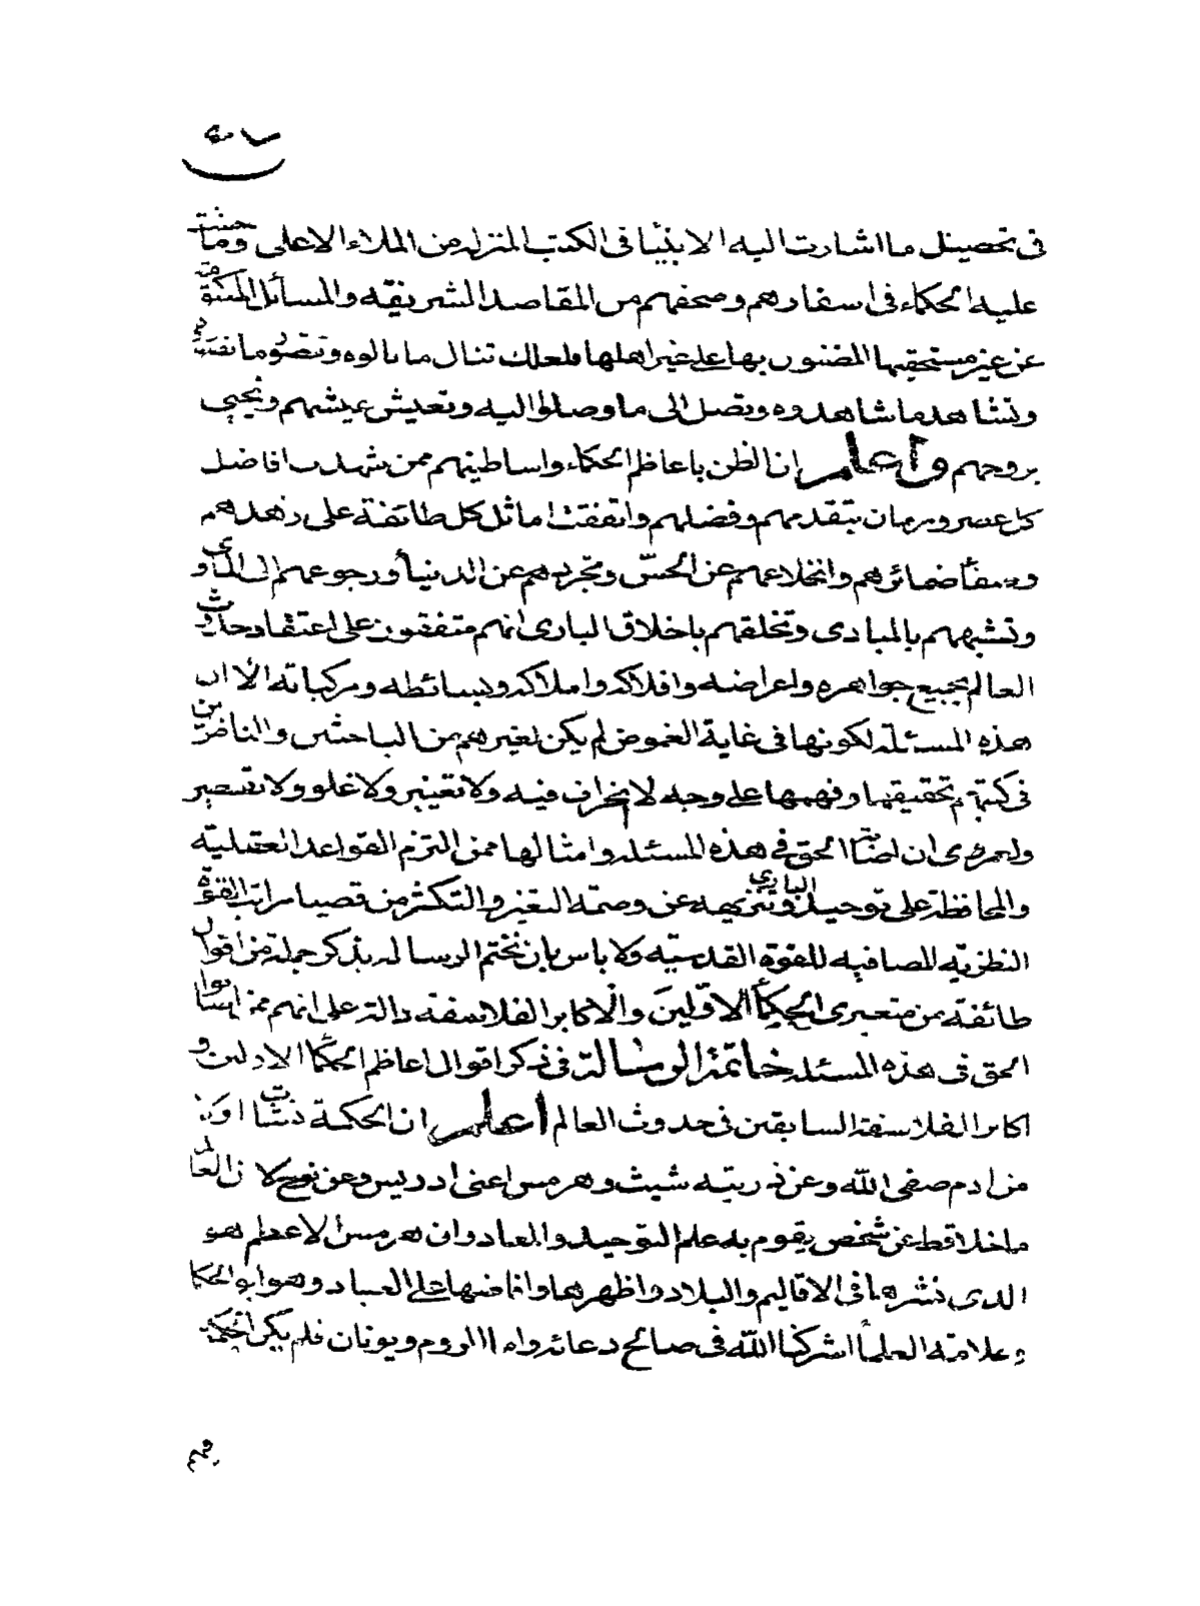 في تحصيل ما اشارت اليه الانبيا في الكتب المنزله من الملاء الاعلى وما حثت
عليه الحكماء في اسفارهم وصحفهم من المقاصد الشريفه والمسائل
عن غير مستحقيها المضنون بها على غير اهلها فلعلك تنال ما نالوه وتتصور ما
وتشاهد ما شاهدوه وتصل الى ما وصلوا اليه وتعيش عيشهم وتحيى
بروحهم واعلم ان الظن باعاظم الحكماء واساطينهم ممن شهدت افاضل
كل عصر وزمان بتقدمهم وفضلهم واتفقت اماثل كل طائفة على زهدهم
وصفأ ضمائرهم وانخلاعهم عن الحسّ وتجردهم عن الدنيا ورجوعهم الى الماوى
وتشبههم بالمبادى وتخلقهم باخلاق البارى انهم متفقون على اعتقاد حدوث
العالم بجميع جواهره واعراضه وافلاكه واملاكه وبسائطه ومركباته الا ان
هذه المسئلة لكونها في غاية الغموض لم يكن لغيرهم من الباحثين والناظرين
في كتبهم تحقيقها وفهمها على وجه لا انحراف فيه ولا تغيير ولا غلو ولا تقصير
ولعمرى ان اصابة الحق في هذه المسئله وامثالها ممن التزم القواعد العقلية
والمحافظة على توحيد الباري وتنزيهه عن وصمة التغير والتكثر من قصيا مراتب القوة
النظريّه المصافيه للقوة القدسيّه ولا باس بان نختم الرساله بذكر جملة من اقوال
طائفة من متعبرى الحكمأ الاوّلين والاكابر الفلاسفة دالة على انهم ممن اصابوا
الحق في هذه المسئله خاتمة الرسالة في ذكر اقوال اعاظم الحكمأ الاولين و
اكابر الفلاسفة السابقين في حدوث العالم اعلم ان الحكمة نشأت اولا
من ادم صفى الله وعن ذريته شيث وهرمس اعنى ادريس وعن نوح لان العالم
ما خلا قط عن شخص يقوم به علم التوحيد والمعاد وان هرمس الاعظم هو
الذى نشرها في الاقاليم والبلاد واظهرها وافاضها على العباد وهو ابو الحكما
وعلامة العلمأ اشركنا الله في صالح دعائه واما الروم ويونان فلم يكن الحكمة
فيهم